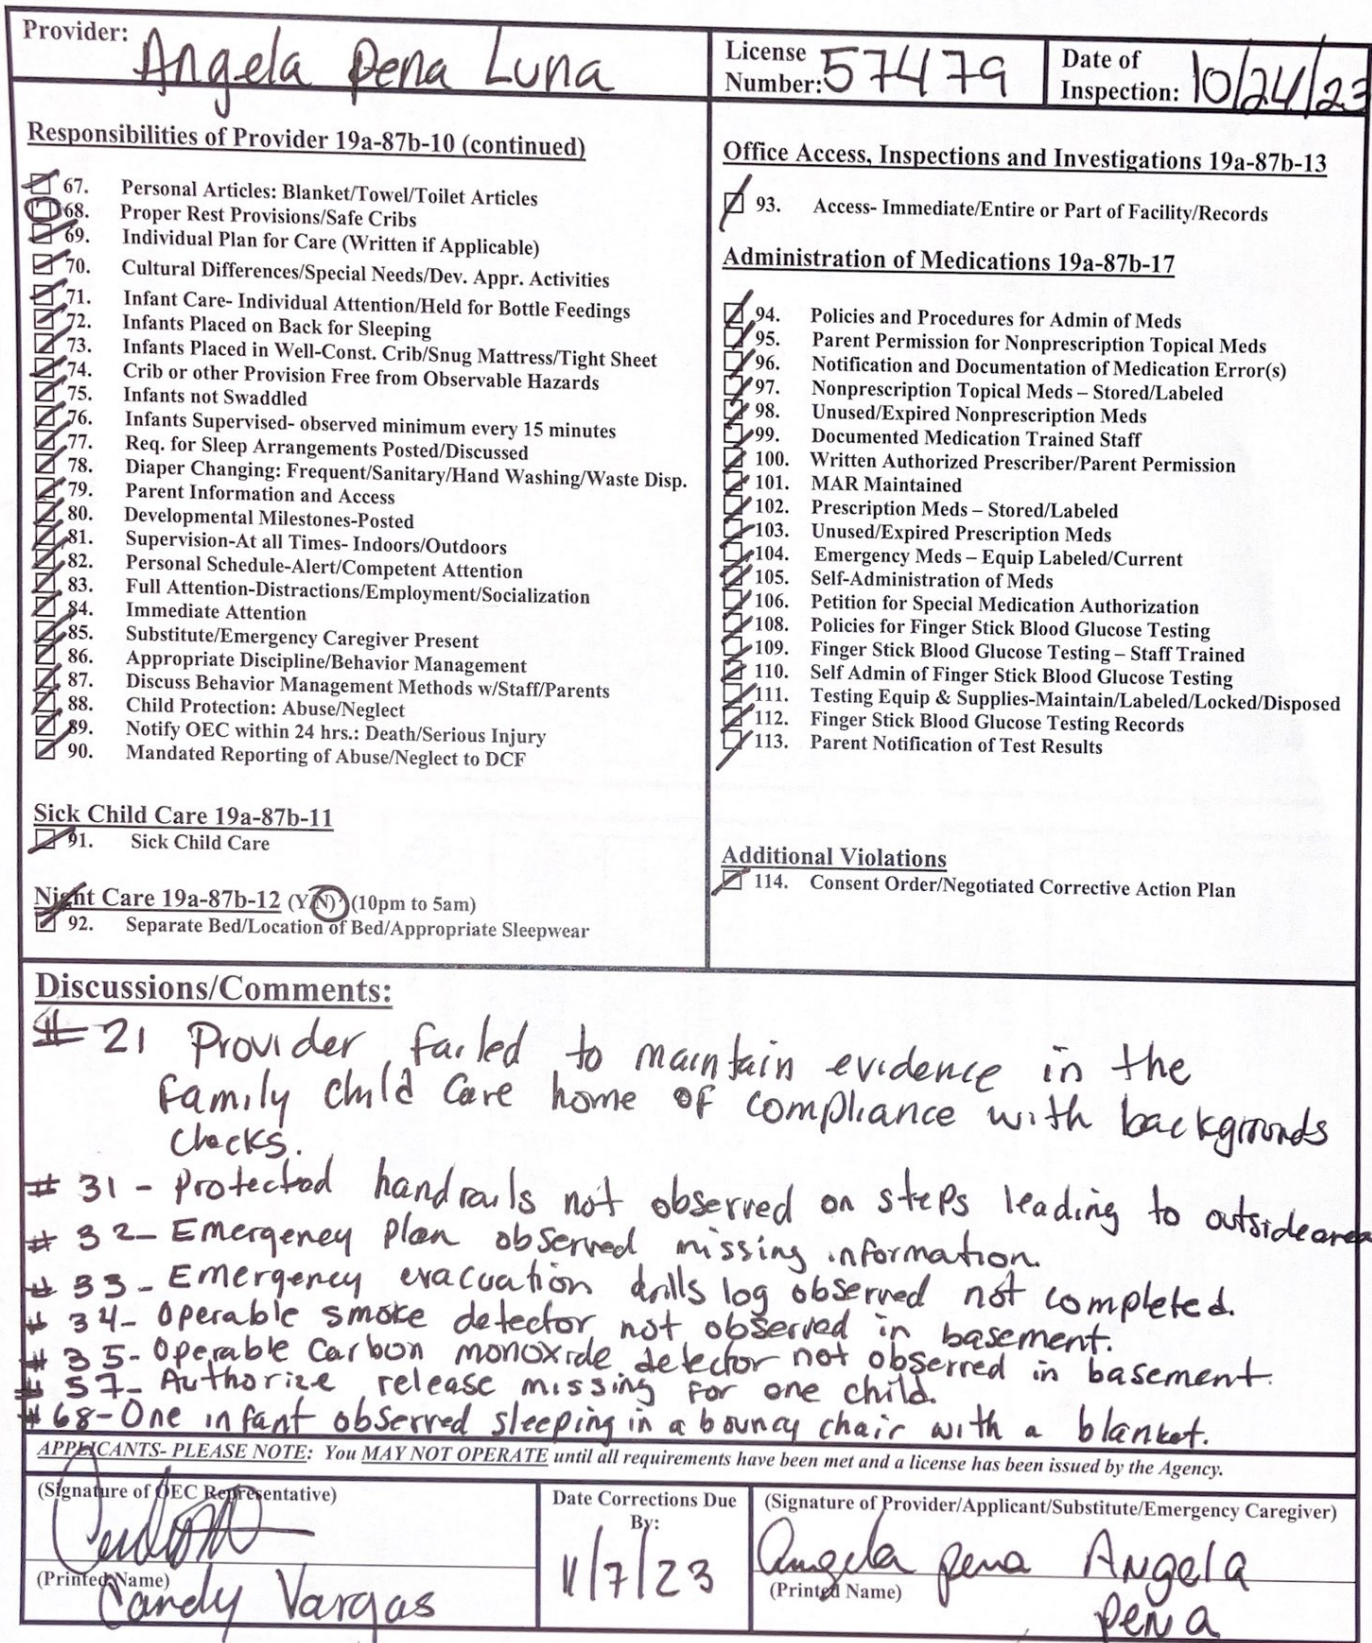 Provider: Angela Pena Luna
License Number: 57479
Date of Inspection: 10/24/23
Responsibilities of Provider 19a-87b-10 (continued)
67. Personal Articles: Blanket/Towel/Toilet Articles
68. Proper Rest Provisions/Safe Cribs
69. Individual Plan for Care (Written if Applicable)
70. Cultural Differences/Special Needs/Dev. Appr. Activities
71. Infant Care- Individual Attention/Held for Bottle Feedings
72. Infants Placed on Back for Sleeping
73. Infants Placed in Well-Const. Crib/Snug Mattress/Tight Sheet
74. Crib or other Provision Free from Observable Hazards
75. Infants not Swaddled
76. Infants Supervised- observed minimum every 15 minutes
77. Req. for Sleep Arrangements Posted/Discussed
78. Diaper Changing: Frequent/Sanitary/Hand Washing/Waste Disp.
79. Parent Information and Access
80. Developmental Milestones-Posted
81. Supervision-At all Times- Indoors/Outdoors
82. Personal Schedule-Alert/Competent Attention
83. Full Attention-Distractions/Employment/Socialization
84. Immediate Attention
85. Substitute/Emergency Caregiver Present
86. Appropriate Discipline/Behavior Management
87. Discuss Behavior Management Methods w/Staff/Parents
88. Child Protection: Abuse/Neglect
89. Notify OEC within 24 hrs.: Death/Serious Injury
90. Mandated Reporting of Abuse/Neglect to DCF
Sick Child Care 19a-87b-11
91. Sick Child Care
Night Care 19a-87b-12 (Y/N) (10pm to 5am)
92. Separate Bed/Location of Bed/Appropriate Sleepwear
Office Access, Inspections and Investigations 19a-87b-13
93. Access- Immediate/Entire or Part of Facility/Records
Administration of Medications 19a-87b-17
94. Policies and Procedures for Admin of Meds
95. Parent Permission for Nonprescription Topical Meds
96. Notification and Documentation of Medication Error(s)
97. Nonprescription Topical Meds – Stored/Labeled
98. Unused/Expired Nonprescription Meds
99. Documented Medication Trained Staff
100. Written Authorized Prescriber/Parent Permission
101. MAR Maintained
102. Prescription Meds – Stored/Labeled
103. Unused/Expired Prescription Meds
104. Emergency Meds – Equip Labeled/Current
105. Self-Administration of Meds
106. Petition for Special Medication Authorization
108. Policies for Finger Stick Blood Glucose Testing
109. Finger Stick Blood Glucose Testing – Staff Trained
110. Self Admin of Finger Stick Blood Glucose Testing
111. Testing Equip & Supplies-Maintain/Labeled/Locked/Disposed
112. Finger Stick Blood Glucose Testing Records
113. Parent Notification of Test Results
Additional Violations
114. Consent Order/Negotiated Corrective Action Plan
Discussions/Comments:
# 21 Provider failed to maintain evidence in the
family child care home of compliance with backgrounds
checks.
# 31 - Protected handrails not observed on steps leading to outside area
# 32- Emergency Plan observed missing information.
# 33- Emergency evacuation drills log observed not completed.
# 34- Operable smoke detector not observed in basement.
# 35- Operable Carbon monoxide detector not observed in basement.
# 57- Authorize release missing for one child.
# 68- One infant observed sleeping in a bouncy chair with a blanket.
APPLICANTS- PLEASE NOTE: You MAY NOT OPERATE until all requirements have been met and a license has been issued by the Agency.
(Signature of OEC Representative)
(Printed Name)
Candy Vargas
Date Corrections Due
By:
11/7/23
(Signature of Provider/Applicant/Substitute/Emergency Caregiver)
Angela pena Angela
(Printed Name)
Pena